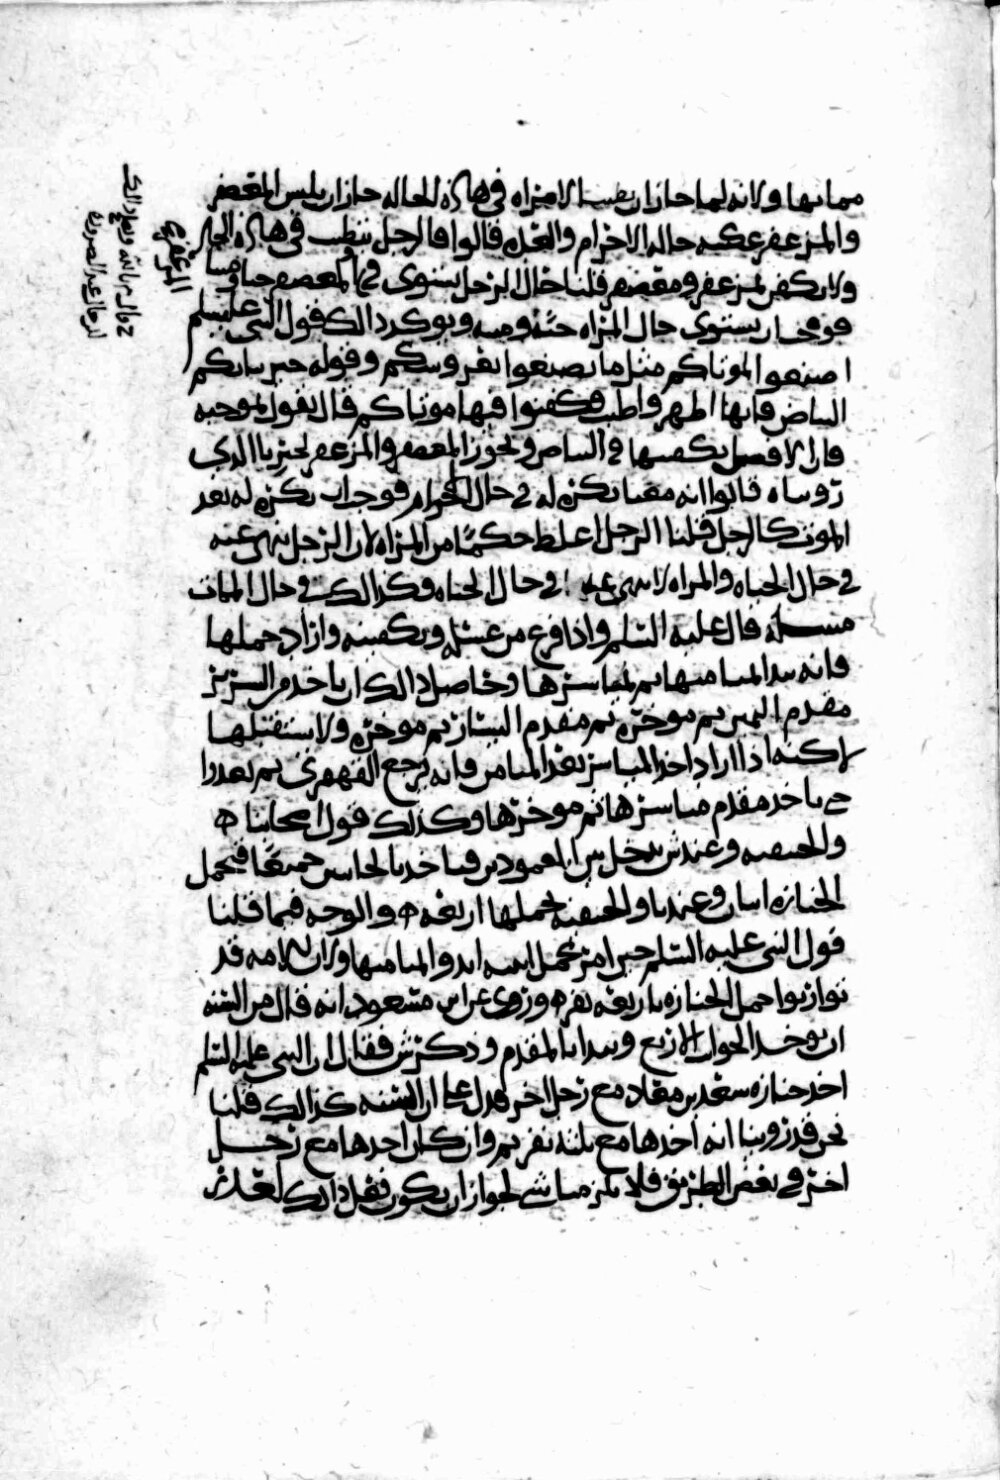 مماتها ولانه لما جاز ان تطيب الامراه في هاذه الحاله جاز ان يلبس المعصفر
والمزعفر عكسه حاله الاحرام والعده قالوا فالرجل يتطيب في هاذه الحال
ولا يكفن بمزعفر ومعصفر قلنا حال الرجل يستوي في المعصفر حيا وميتا
فوجب ان يستوي حال المراه حيه وميته ويوكد ذالك قول النبي عليه السلم
اصنعوا لموتاكم مثل ما تصنعوا بعروسكم وقوله خير ثيابكم
البياض فانها اطهر واطيب وكفنوا فيها موتاكم قال نقول بموجبه
فان الافضل تكفينها في البياض ويجوز المعصفر والمزعفر لخبرنا الذي
رويناه قالوا انه معنا يكره له في حال الاحرام فوجب ان يكره له بعد
الموت كالرجل قلنا الرجل اغلظ حكمًا من المراه لان الرجل نهي عنه
في حال الحياه والمراه لا نهي عنه في حال الحياه وكذالك في حال الممات
مسله قال عليه السلم واذا فرغ من غسله وتكفينه واراد حملها
فانه يبدا لميامنها ثم لمياسرها وحاصل ذالك ان ياخذ من السرير
مقدم اليمين ثم موخره ثم مقدم اليسار ثم موخره ولا يستقبلها
لاكنه اذا اراد اخذ المياسر بعد الميامن فانه يرجع القهقرى ثم يعدوا
حتى ياخذ مقدم مياسرها ثم موخرها وكذلك قول اصحابنا ه
والحنفيه وعند ش يدخل بين العمودين فياخذ بالجانبين جميعًا فيحمل
الجنازه اثنان وعندنا والحنفيه يحملها اربعه ه والوجه فيما قلنا
قول النبي عليه السلم حين امر بحمل ابنه ابدوا لميامنها ولان الامه قد
توارثوا حمل الجنازه باربعه نفر ه وروي عن ابن مسعود انه قال من السنه
ان يوخذ الجوانب الاربع ويبدا بالمقدم وذكر ش فقال ان النبي عليه السلم
اخذ جنازه سعد بن معاذ مع رجل اخر فدل على ان السنه كذالك قلنا
نحن قد روينا انه اخذها مع ثلثه نفر ثم وان كان اخذها مع رجل
اخر في بعض الطريق فلا يلزمنا شي لجواز ان يكون فعل ذالك لعذر